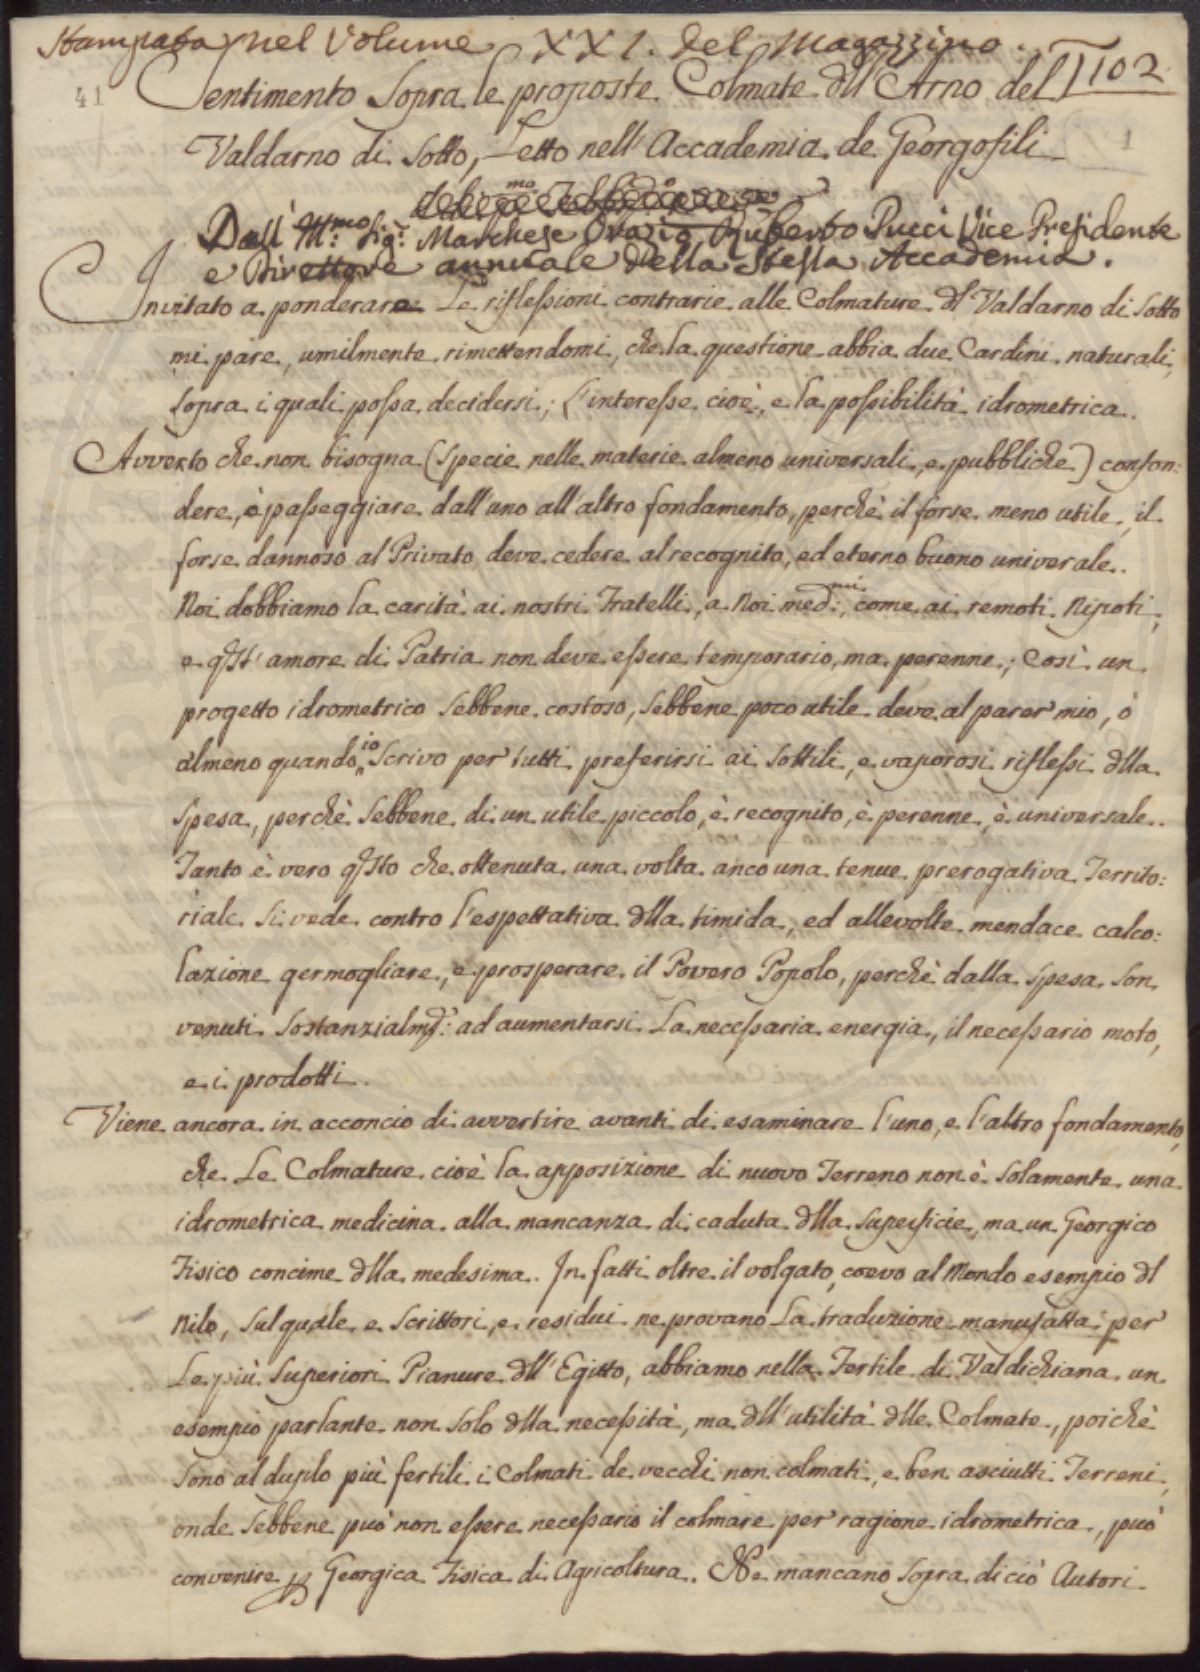 Stampata nel Volume XXI. del Magazzino.
1102
41
Sentimento Sopra le proposte Colmate dll'Arno del
Valdarno di Sotto, Letto nell'Accademia de Georgofili
1
Dall' Ill.mo Sig.r Marchese Orazio Ruberto Pucci Vice Presidente
e Direttore annuale della Stessa Accademia.
Invitato a ponderare Le riflessioni contrarie alle Colmature dl Valdarno di Sotto
mi pare, umilmente rimettendomi, che la questione abbia due Cardini naturali,
Sopra i quali possa decidersi; L'interesse cioè, e la possibilità idrometrica.
Avverto che non bisogna (Specie nelle materie almeno universali, e pubbliche) confon:
dere, ò passeggiare dall'uno all'altro fondamento, perchè il forse meno utile, il
forse dannoso al Privato deve cedere al recognito, ed eterno buono universale.
Noi dobbiamo la carità ai nostri Fratelli, a Noi med:mi, come ai remoti Nipoti,
e qst'amore di Patria non deve essere temporario, ma perenne; Così un
progetto idrometrico Sebbene costoso, Sebbene poco utile deve al parer mio, ò
almeno quando io Scrivo per tutti preferirsi ai Sottili, e vaporosi riflessi dlla
Spesa, perchè Sebbene di un utile piccolo, è recognito, è perenne, è universale.
Tanto è vero qsto che ottenuta una volta anco una tenue prerogativa Territo:
riale Si vede contro l'espettativa dlla timida, ed allevolte mendace calco:
lazione germogliare, e prosperare il Povero Popolo, perchè dalla Spesa Son
venuti Sostanzialmte: ad aumentarsi La necessaria energia, il necessario moto,
e i prodotti.
Viene ancora in acconcio di avvertire avanti di esaminare l'uno, e l'altro fondamento,
che Le Colmature cioè la apposizione di nuovo Terreno non è Solamente una
idrometrica medicina alla mancanza di caduta dlla Superficie, ma un Georgico
Fisico concime dlla medesima. In fatti oltre il volgato, coevo al Mondo esempio dl
Nilo, Sul quale e Scrittori, e residui ne provano La traduzione manufatta per
Le più Superiori Pianure dll'Egitto, abbiamo nella Fertile di Valdichiana un
esempio parlante non Solo dlla necessità, ma dll'utilità dlle Colmate, poichè
Sono al duplo più fertili i Colmati de vecchi non colmati, e ben asciutti Terreni,
onde Sebbene può non essere necessario il colmare per ragione idrometrica, può
convenire p Georgica Fisica di Agricoltura. Ne mancano Sopra di ciò Autori